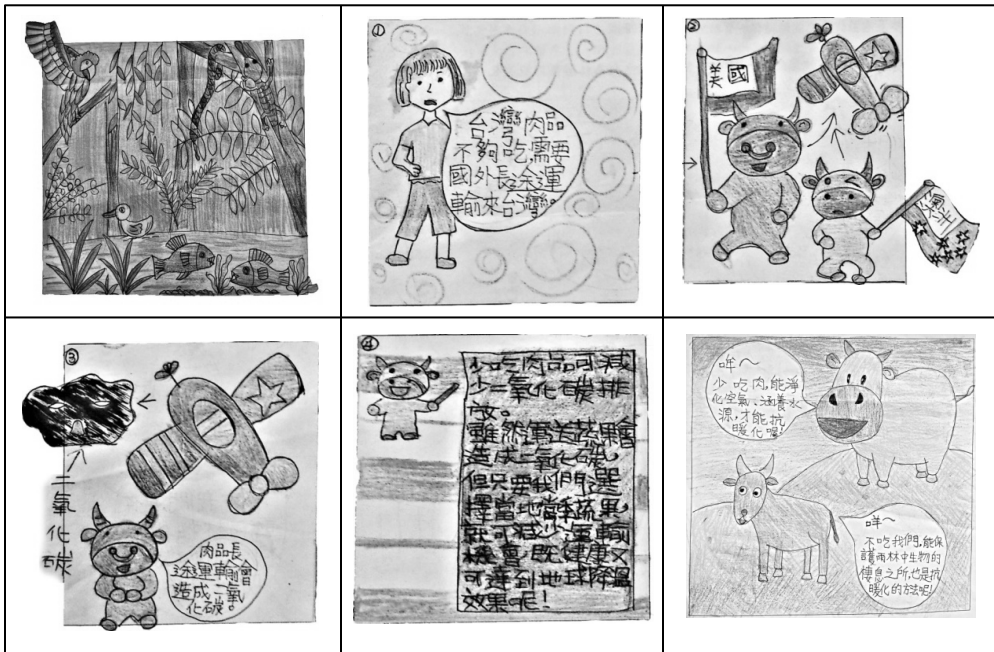 ①
台灣肉品
不夠吃,需要
國外長途運
輸來台灣。
②
美國
③
二氧化碳
肉品長
途運輸會
造成二氧
化碳。
④
少吃肉品可減
少二氧化碳排
放。
雖然運送蔬果會
造成二氧化碳,
但只要我們選
擇當地當季蔬果,
就可減少運輸
機會,既健康又
可達到地球降溫
效果呢!
哞~
少吃肉,能淨
化空氣、涵養水
源,才能抗
暖化喔!
咩~
不吃我們,能保
護雨林中生物的
棲息之所,也是抗
暖化的方法呢!